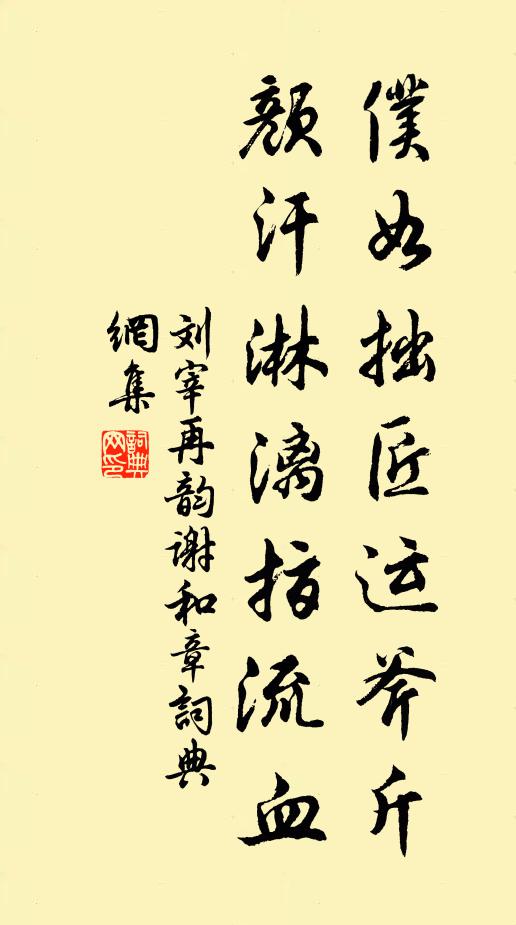 僕如拙匠运斧斤
颜汗淋漓指流血
刘宰再韵谢和章詞典
網集
詞典
网印